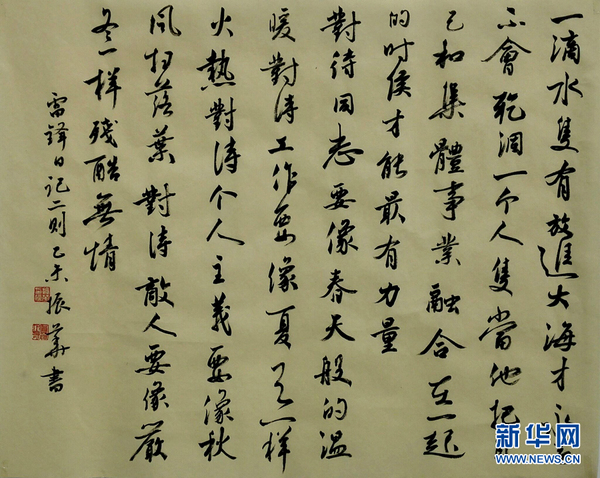 一滴水隻有放進大海才
不會乾涸一个人隻當他把
己和集體事業融合在一起
的时侯才能最有力量
對待同志要像春天般的溫
暖對待工作要像夏天一样
火熱對待个人主義要像秋
风扫落葉對待敵人要像嚴
冬一样残酷無情
雷鋒日記二則乙未振華書
新华网
WWW.NEWS.CN